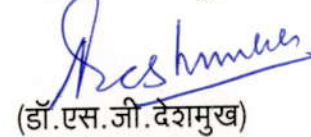 (डॉ.एस.जी.देशमुख)